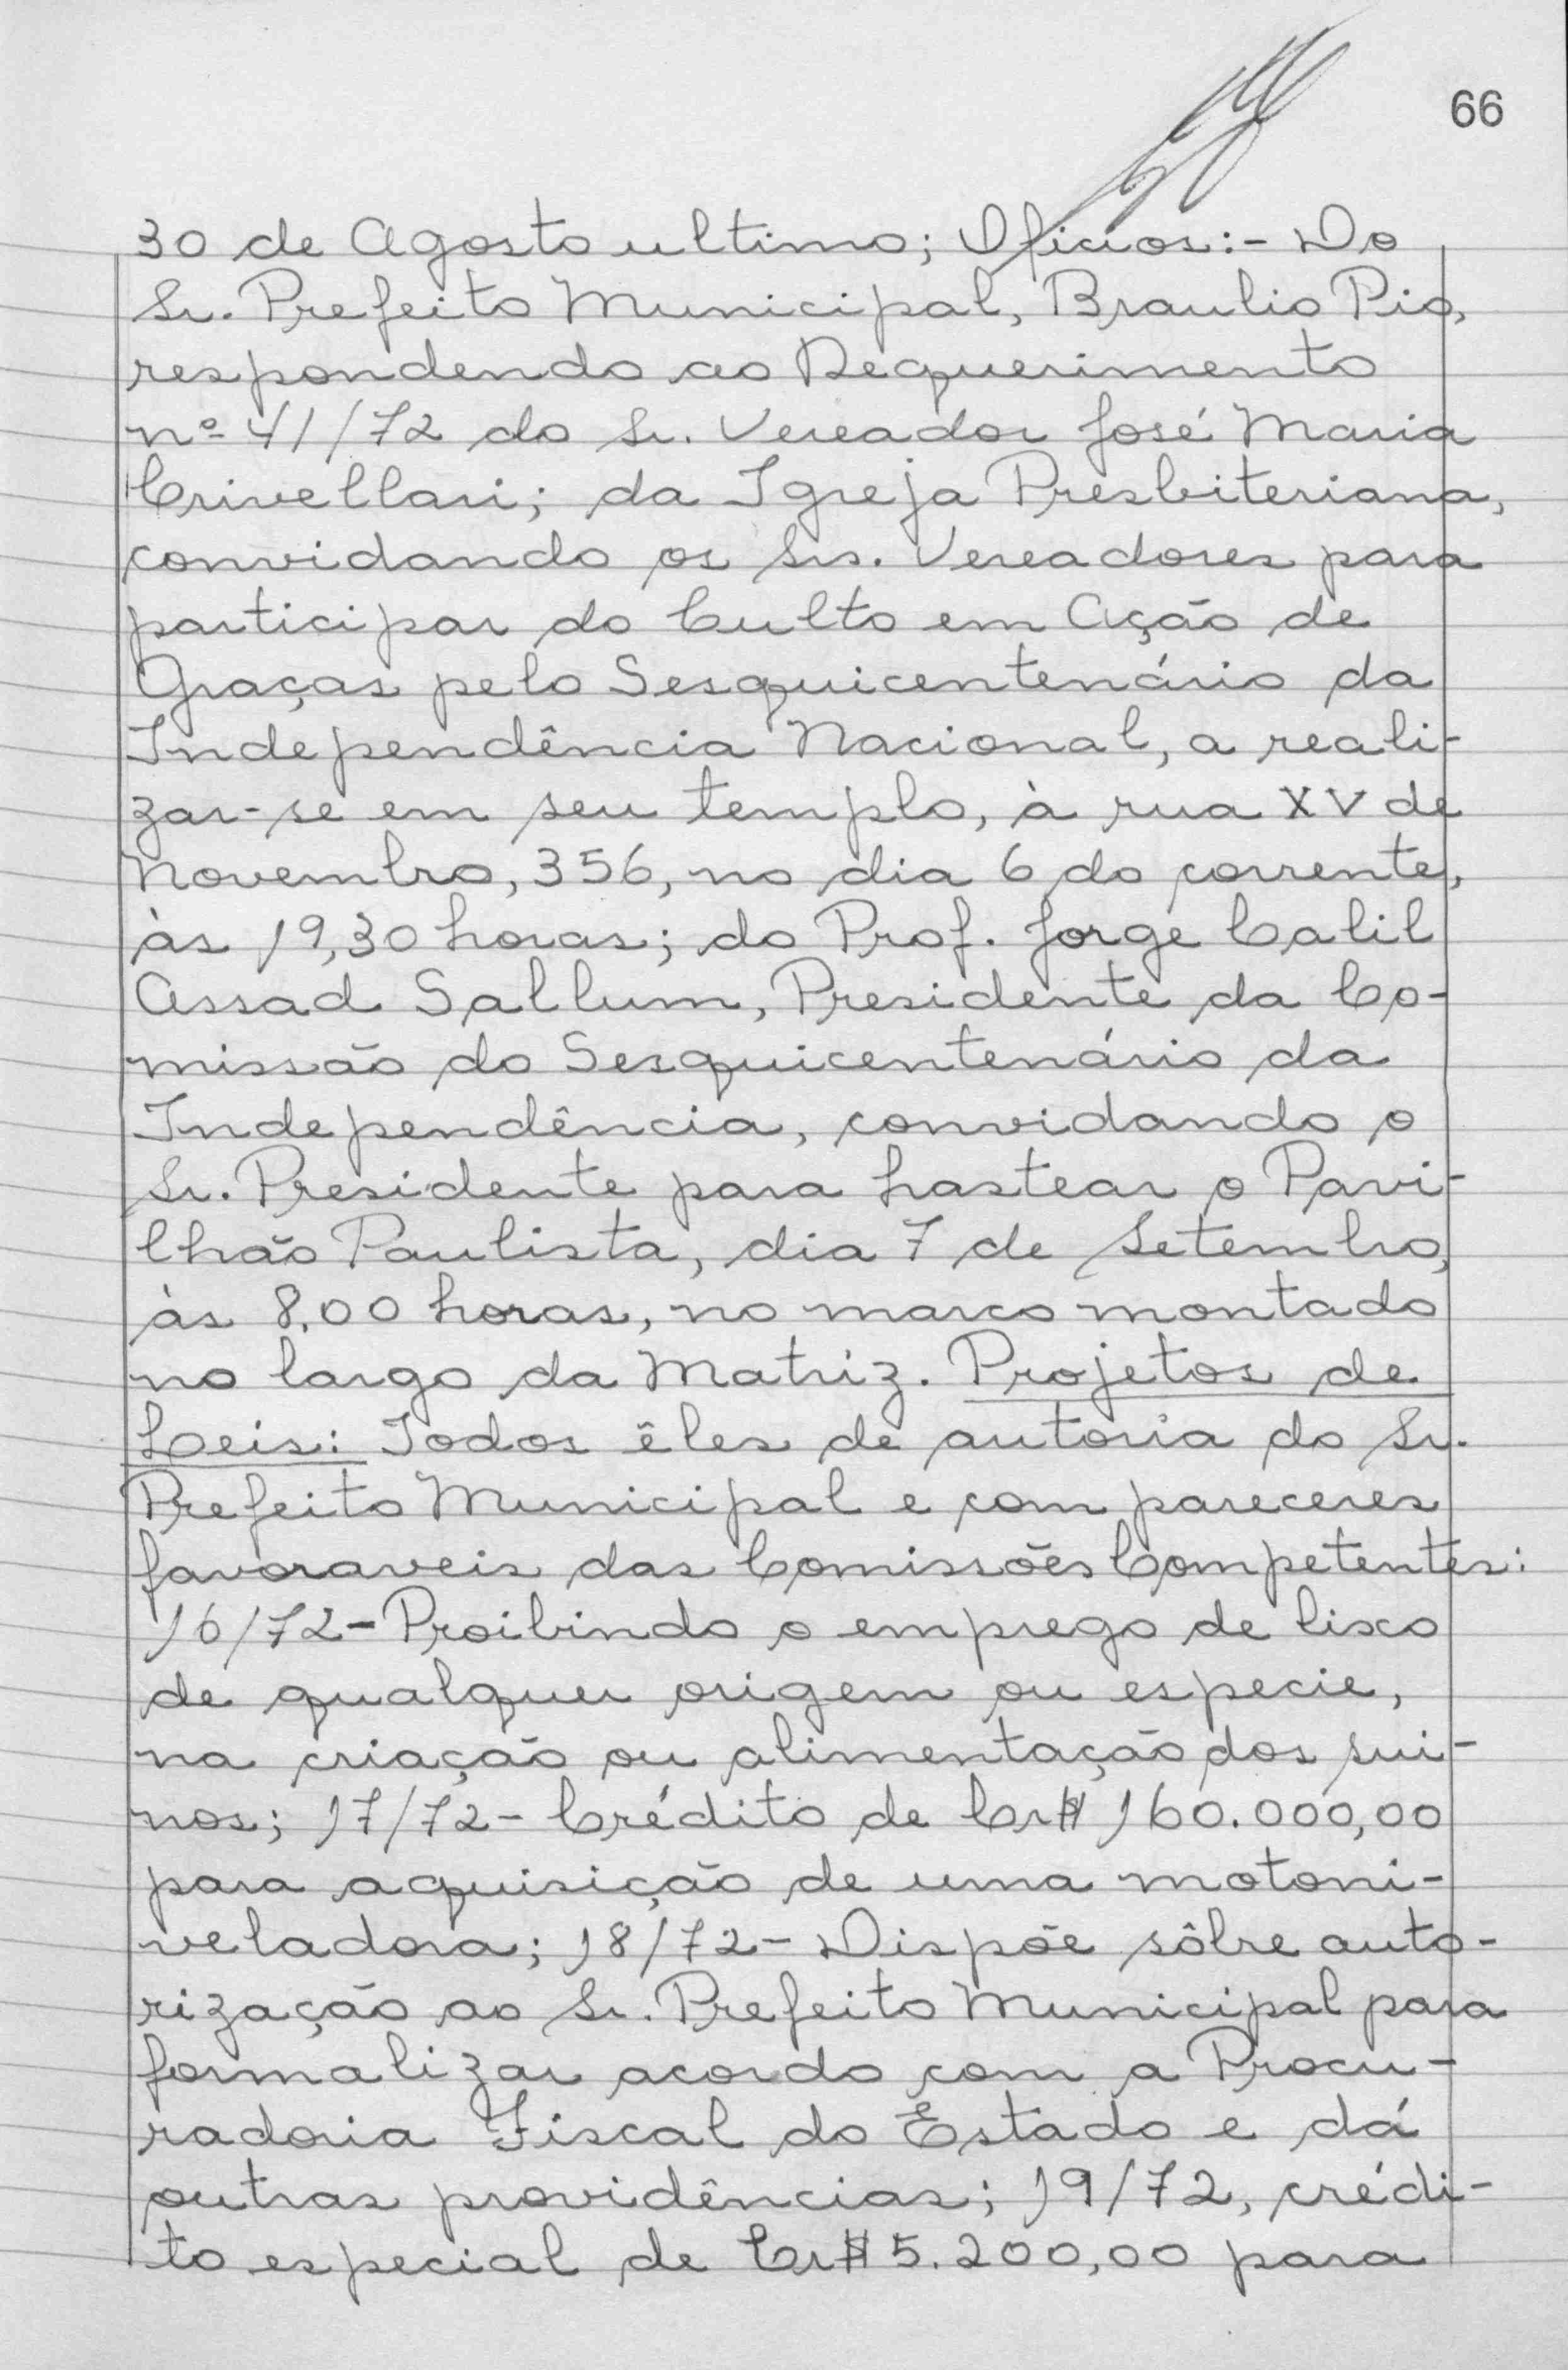 66
30 de Agosto ultimo; Oficios:- Do
Sr. Prefeito Municipal, Braulio Pio,
respondendo ao Requerimento
nº 41/72 do Sr. Vereador José Maria
Crivellari; da Igreja Presbiteriana,
convidando os Srs. Vereadores para
participar do Culto em Ação de
Graças pelo Sesquicentenário da
Independência Nacional, a reali-
zar-se em seu templo, à rua XV de
Novembro, 356, no dia 6 do corrente,
às 19,30 horas; do Prof. Jorge Calil
Assad Sallum, Presidente da Co-
missão do Sesquicentenário da
Independência, convidando o
Sr. Presidente para hastear o Pavi-
lhão Paulista, dia 7 de Setembro,
às 8,00 horas, no marco montado
no largo da Matriz. Projetos de
Leis: Todos êles de autoria do Sr.
Prefeito Municipal e com pareceres
favoraveis das Comissões Competentes:
16/72- Proibindo o emprego de lixo
de qualquer origem ou especie,
na criação ou alimentação dos sui-
nos; 17/72- Crédito de Cr$ 160.000,00
para aquisição de uma motoni-
veladora; 18/72- Dispõe sôbre auto-
rização ao Sr. Prefeito Municipal para
formalizar acordo com a Procu-
radoria Fiscal do Estado e dá
outras providências; 19/72, crédi-
to especial de Cr$ 5.200,00 para